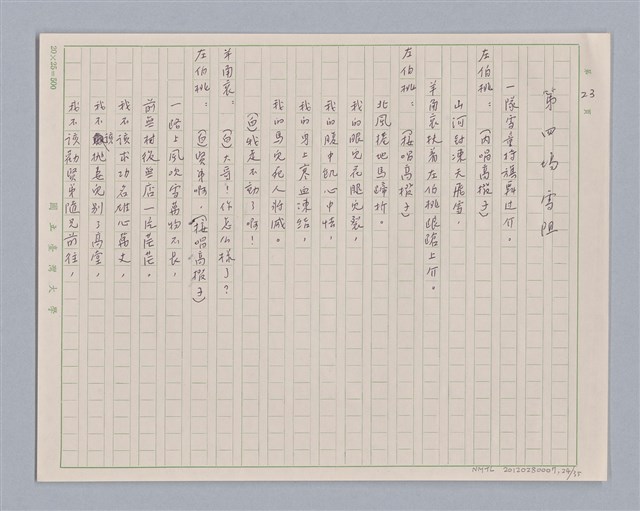 第23頁
第四場 雪阻
一隊雪童持旗舞过介。
左伯桃：（內唱高撥子）
山河封凍天飛雪，
羊角哀扶着左伯桃踉蹌上介。
左伯桃：（接唱高撥子）
北風捲地馬蹄折。
我的眼兒花腿兒裂，
我的腹中飢心中怯，
我的身上寒血凍結，
我的馬兒死人將滅。
（白）我走不動了啊！
羊角哀：（白）大哥！你怎么樣了？
左伯桃：（白）賢弟啊，（接唱高撥子）
一路上風吹雪萬物不長，
前無村後無店一片茫茫。
我不該求功名雄心萬丈，
我不該拋妻兒別了高堂，
我不該勸賢弟隨兄前往，
20×25=500
國立臺灣大學
NMTL 20120230007,24/35